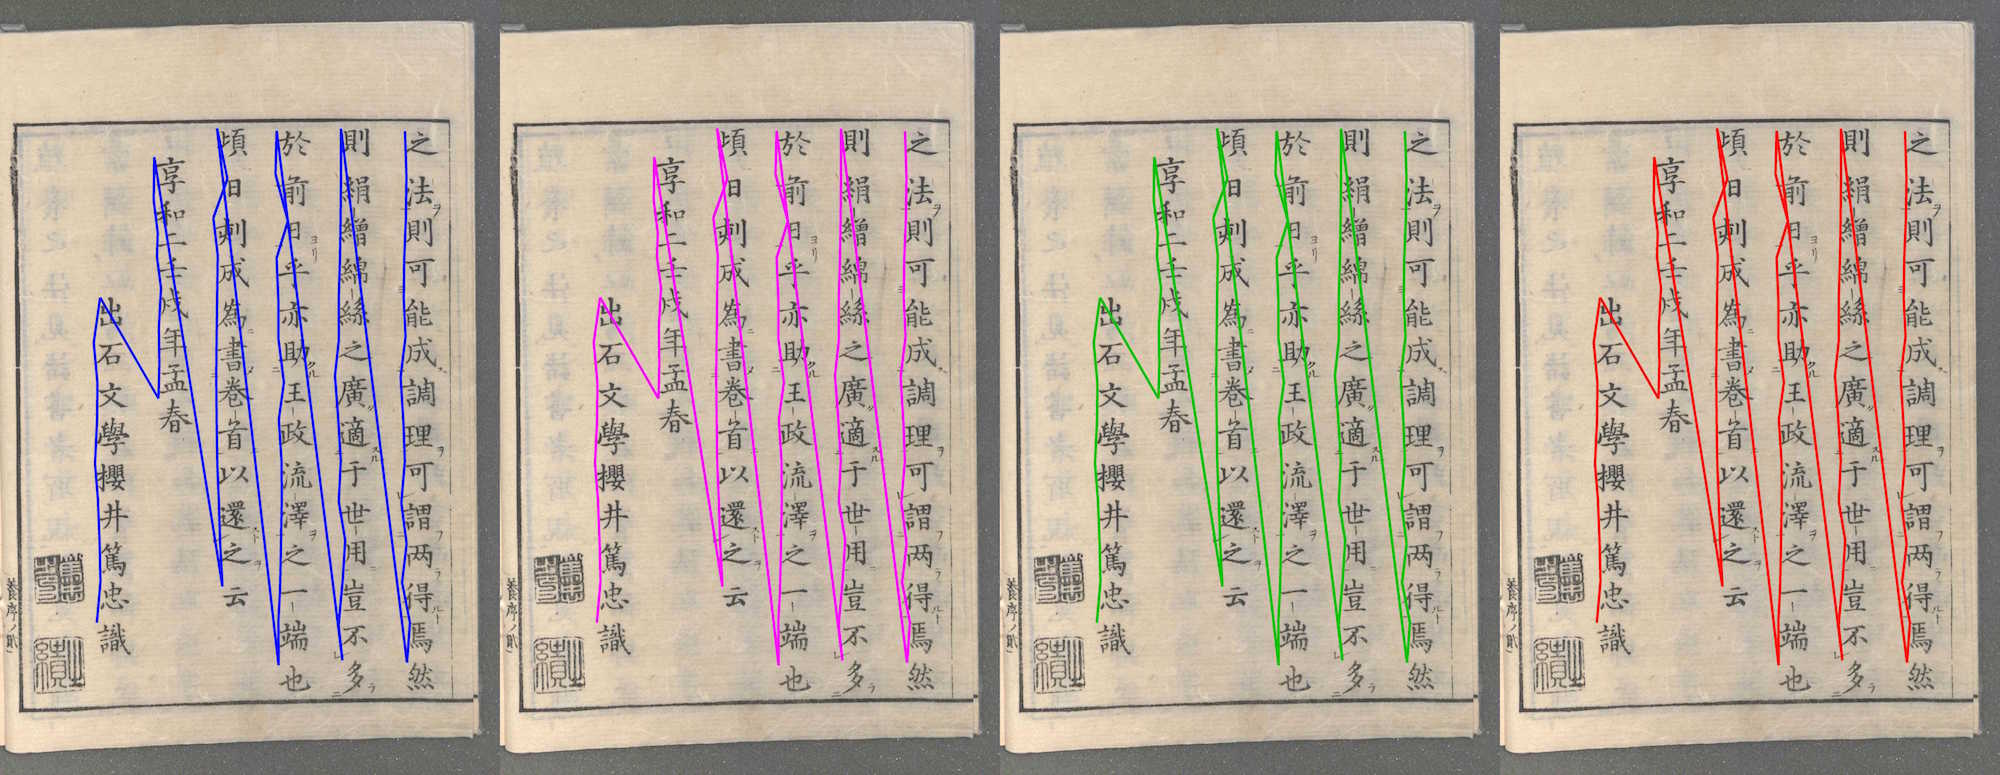 之法則可能成調理可謂两得焉然
則絹繒綿絲之廣適于世用豈不多
於前日乎亦助王政流澤之一端也
頃日刺成為書卷首以還之云
享和二壬戌年孟春
出石文學櫻井篤忠識
之法則可能成調理可謂两得焉然
則絹繒綿絲之廣適于世用豈不多
於前日乎亦助王政流澤之一端也
頃日刺成為書卷首以還之云
享和二壬戌年孟春
出石文學櫻井篤忠識
之法則可能成調理可謂两得焉然
則絹繒綿絲之廣適于世用豈不多
於前日乎亦助王政流澤之一端也
頃日刺成為書卷首以還之云
享和二壬戌年孟春
出石文學櫻井篤忠識
之法則可能成調理可謂两得焉然
則絹繒綿絲之廣適于世用豈不多
於前日乎亦助王政流澤之一端也
頃日刺成為書卷首以還之云
享和二壬戌年孟春
出石文學櫻井篤忠識